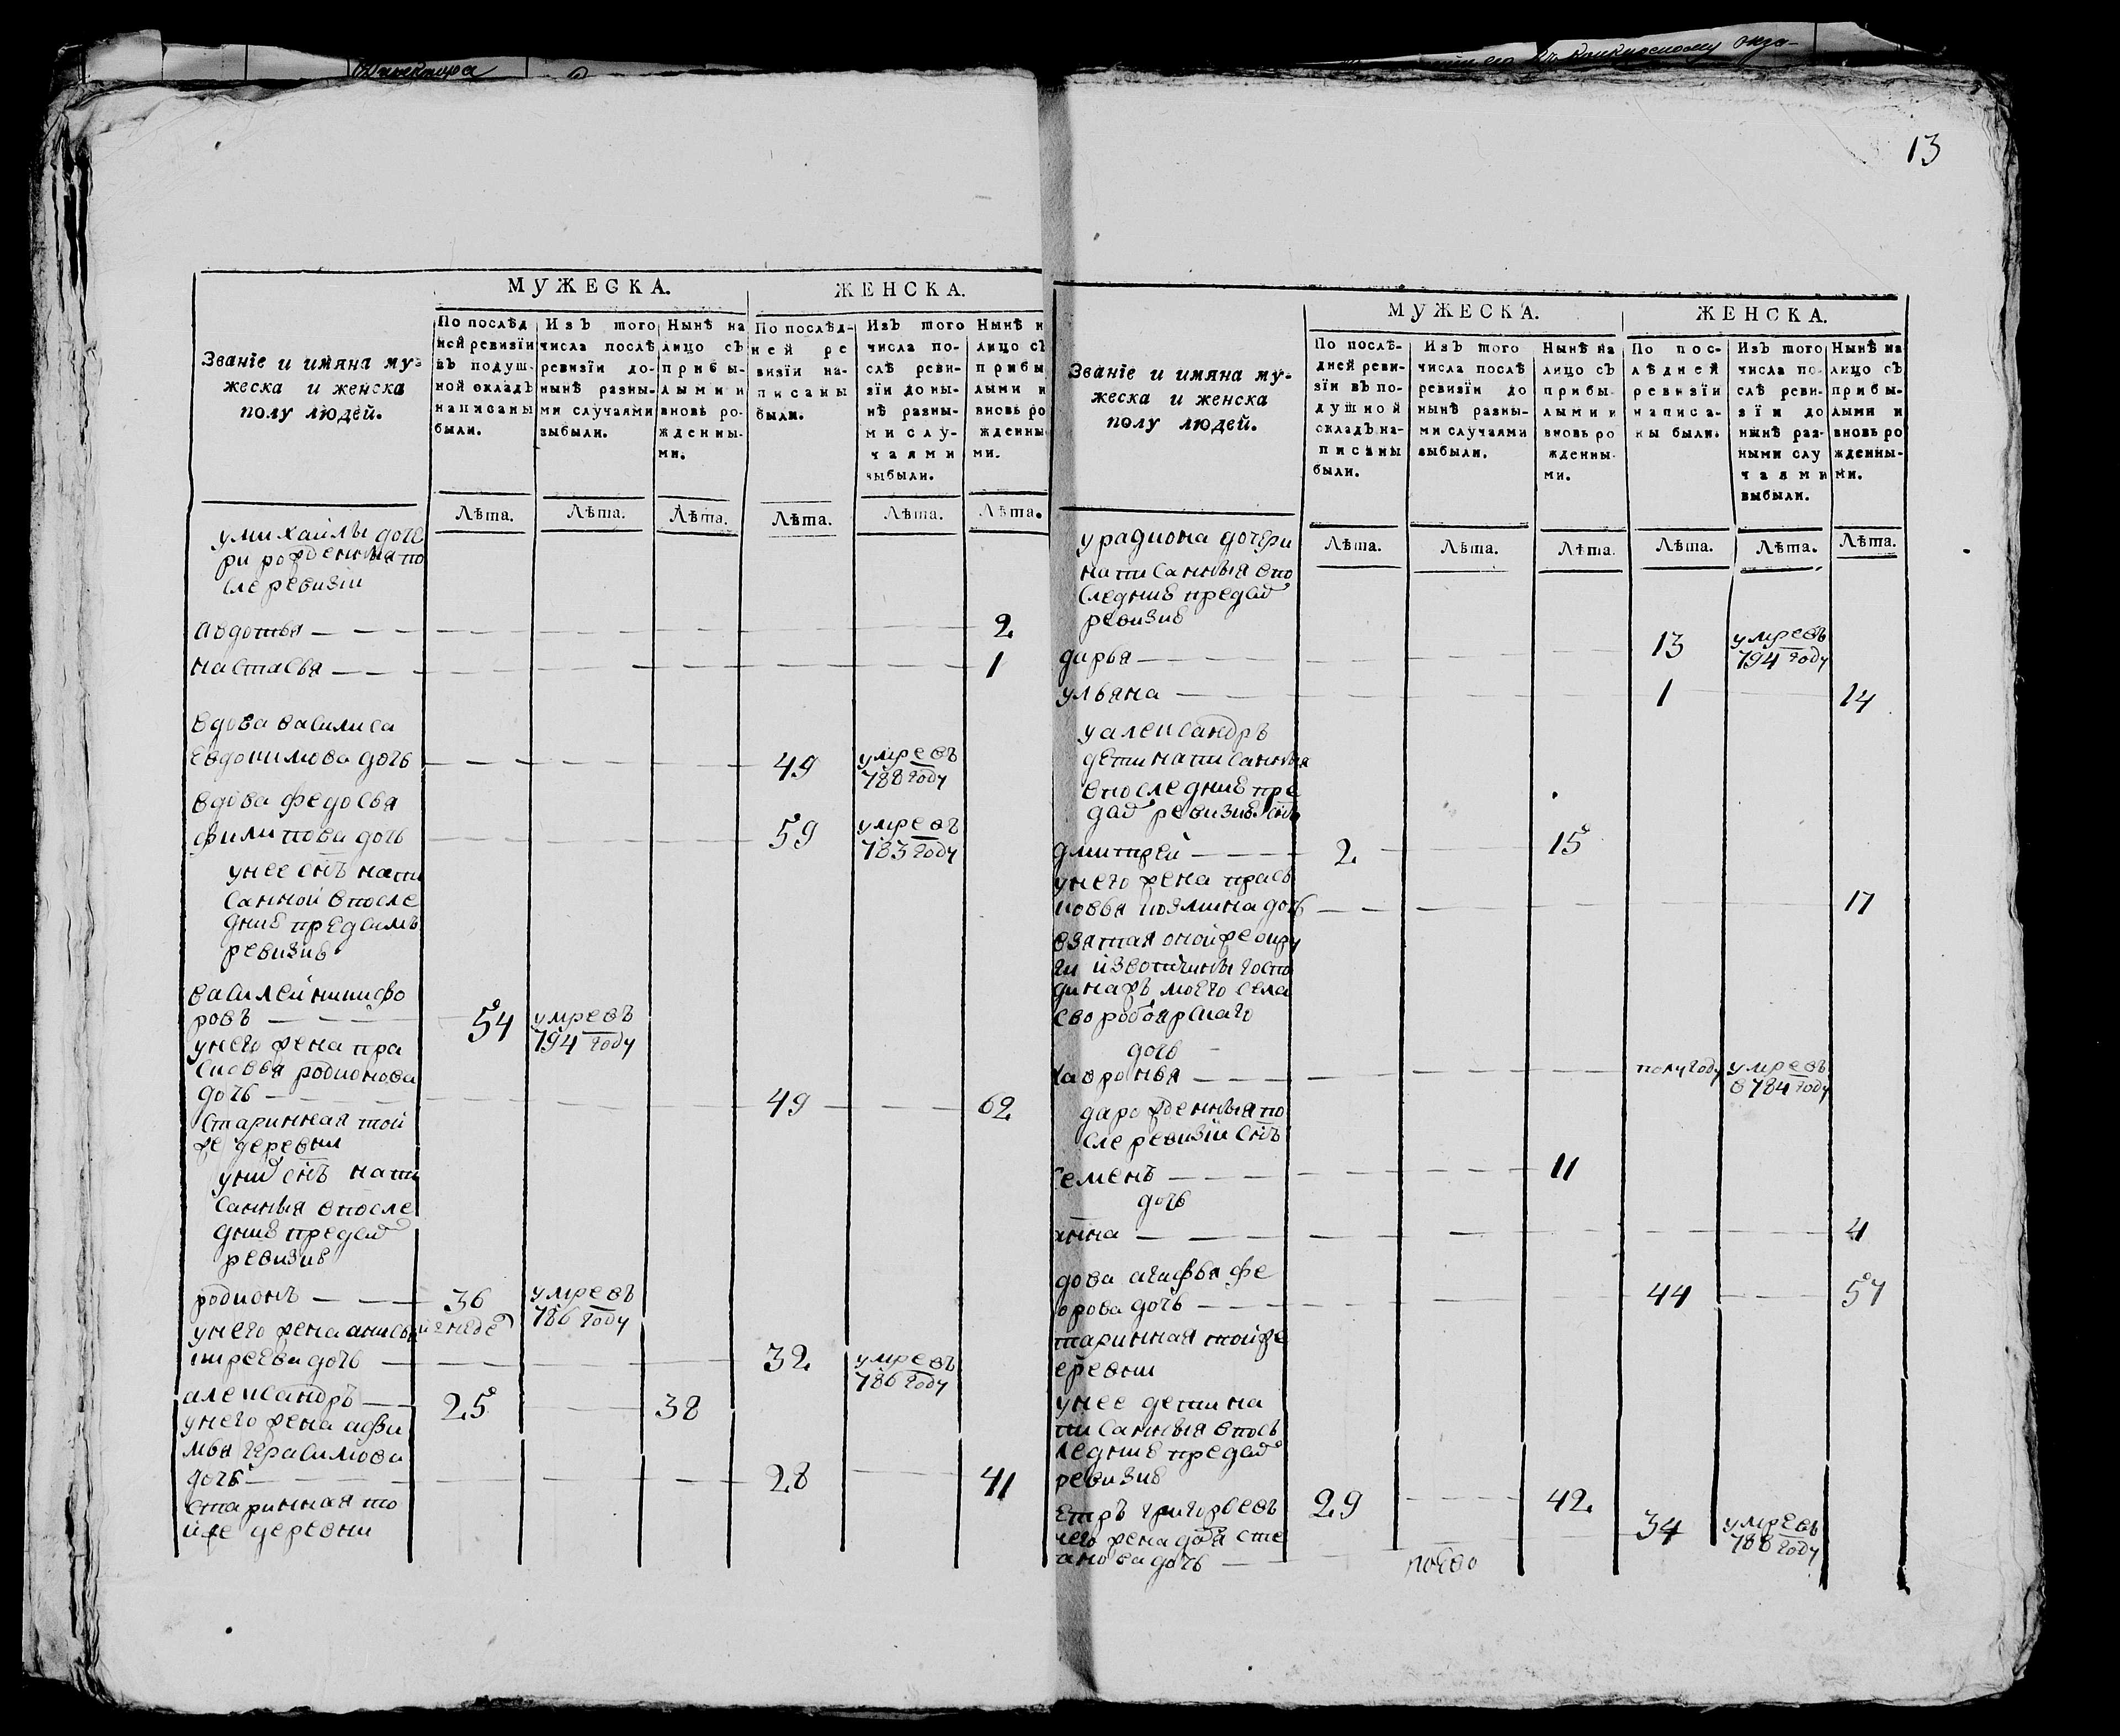 13
МУЖЕСКА.
ЖЕНСКА.
Званїе и имяна му-
жеска и женска
полу людей.
По послѣд
ней ревизїи
въ подуш-
ной окладъ
написаны
были.
Изъ того
числа послѣ
ревизїи до-
нынѣ разны-
ми случаями
выбыли.
Нынѣ на
лицо съ
прибы-
лыми и
вновь ро-
жденны-
ми.
По послѣд-
ней ре
визїи на-
писаны
были.
Изъ того
числа по-
слѣ реви-
зїи до ны-
нѣ разны-
ми слу-
чаями
выбыли.
Нынѣ н
лицо съ
прибы
лыми и
вновь ро
жденны
ми.
Лѣта. Лѣта. Лѣта. Лѣта. Лѣта. Лѣта.
умихайлы доче
ри рожденныя по
сле ревизіи
авдотья 2
настасья 1
вдова василиса
евдокимова дочь 49 умре въ
788 году
вдова федосья
филипова дочь 59 умре въ
783 году
унее снъ напи
санной впосле
днѣ предъимъ
ревизиѣ
василей никифо
ровъ 54 умре въ
794 году
унего жена пра
сковья родионова
дочь 49 62
старинная той
же деревни
уних снъ напи
санныя впосле
днѣ пред
ревизиѣ
родионъ 36 умре въ
786 году
унего жена анисья
дочь 32 умре въ
786 году
александръ 25 38
унего жена афи
мья герасимова
дочь 28 41
старинная то
йже деревни
МУЖЕСКА.
ЖЕНСКА.
Званїе и имяна му-
жеска и женска
полу людей.
По послѣ-
дней реви-
зїи въ по-
душной
окладъ на-
писаны
были.
Изъ того
числа послѣ
ревизїи до
нынѣ разны-
ми случаями
выбыли.
Нынѣ на
лицо съ
прибы-
лыми и
вновь ро
жденны-
ми.
По пос-
лѣдней
ревизїи
написа-
ны были.
Изъ того
числа по-
слѣ реви-
зїи до
нынѣ раз-
ными слу
чаями
выбыли.
Нынѣ на
лицо съ
прибы-
лыми и
вновь ро
жденны-
ми.
Лѣта. Лѣта. Лѣта. Лѣта. Лѣта. Лѣта.
урадиона дочери
написанныя впо
следниѣ пред
ревизиѣ
дарья 13 умре въ
794 году
ульяна 1 14
уалександръ
дети написанныя
впоследниѣ пре
ревизиѣ снъ
дмитрей 2 15
унего жена праск
ковья дочь 17
взятая онойже окру
ги извотчины госпо
динажъ моего села
дочь
хавронья полугоду умре въ
в784 году
дарожденныя по
сле ревизіи снъ
семенъ 11
дочь
анна 4
дова агафья фе
орова дочь 44 57
таринная тойже
еревни
унее дети на
писанныя впос
ледниѣ пред
ревизиѣ
етръ григорьевъ 29 42
него жена сте
анова дочь 34 умре въ
788 году